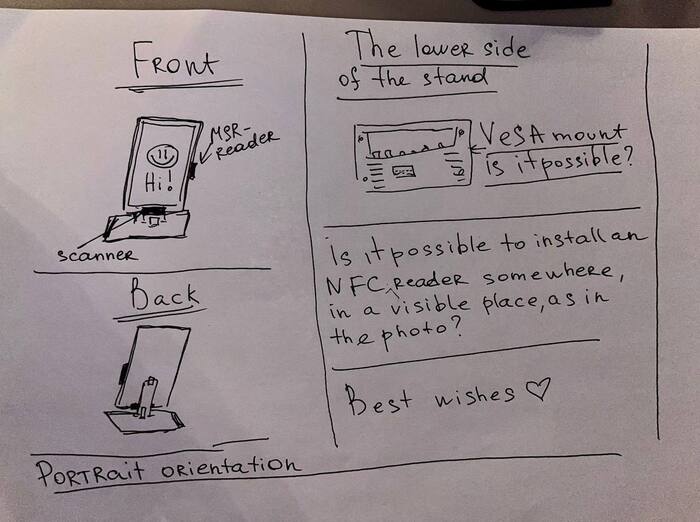 Front
MSR-
Reader
Hi!
scanner
Back
Portrait orientation
The lower side
of the stand
VeSA mount
is it possible?
Is it possible to install an
NFC Reader somewhere,
in a visible place, as in
the photo?
Best wishes ♡